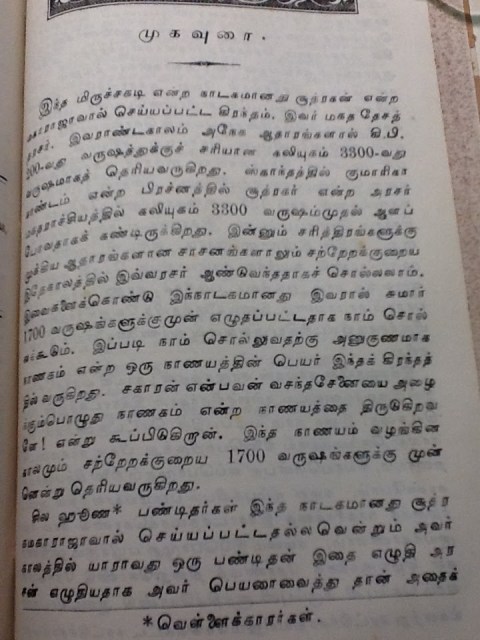 முகவுரை.
இந்த மிருச்சகடி என்ற நாடகமானது சூத்ரகன் என்ற
மகாராஜாவால் செய்யப்பட்ட கிரந்தம். இவர் மகத தேசத்
தரசர். இவராண்டகாலம் அநேக ஆதாரங்களால் கி.பி.
200-வது வருஷத்துக்குச் சரியான கலியுகம் 3300-வது
வருஷமாகத் தெரியவருகிறது. ஸ்காந்தத்தில் குமாரிகா
காண்டம் என்ற பிரச்னத்தில் சூத்ரகர் என்ற அரசர்
மகதராச்சியத்தில் கலியுகம் 3300 வருஷம்முதல் ஆளப்
போவதாகக் கண்டிருக்கிறது. இன்னும் சரித்திரங்களுக்கு
முக்கிய ஆதாரங்களான சாசனங்களாலும் சற்றேறக்குறைய
இதேகாலத்தில் இவ்வரசர் ஆண்டுவந்ததாகச் சொல்லலாம்.
இவைகளைக்கொண்டு இந்நாடகமானது இவரால் சுமார்
1700 வருஷங்களுக்குமுன் எழுதப்பட்டதாக நாம் சொல்
லக்கூடும். இப்படி நாம் சொல்லுவதற்கு அனுகுணமாக
நாணகம் என்ற ஒரு நாணயத்தின் பெயர் இந்தக் கிரந்தத்
தில் வருகிறது. சகாரன் என்பவன் வசந்தசேனையை அழை
க்கும்பொழுது நாணகம் என்ற நாணயத்தை திருடுகிறவ
ளே! என்று கூப்பிடுகிறான். இந்த நாணயம் வழங்கின
காலமும் சற்றேறக்குறைய 1700 வருஷங்களுக்கு முன்
னென்று தெரியவருகிறது.
சில ஹூண* பண்டிதர்கள் இந்த நாடகமானது சூத்ர
கமகாராஜாவால் செய்யப்பட்டதல்லவென்றும் அவர்
காலத்தில் யாராவது ஒரு பண்டிதன் இதை எழுதி அர
சன் எழுதியதாக அவர் பெயரைவைத்து தான் அதைக்
*வெள்ளைக்காரர்கள்.